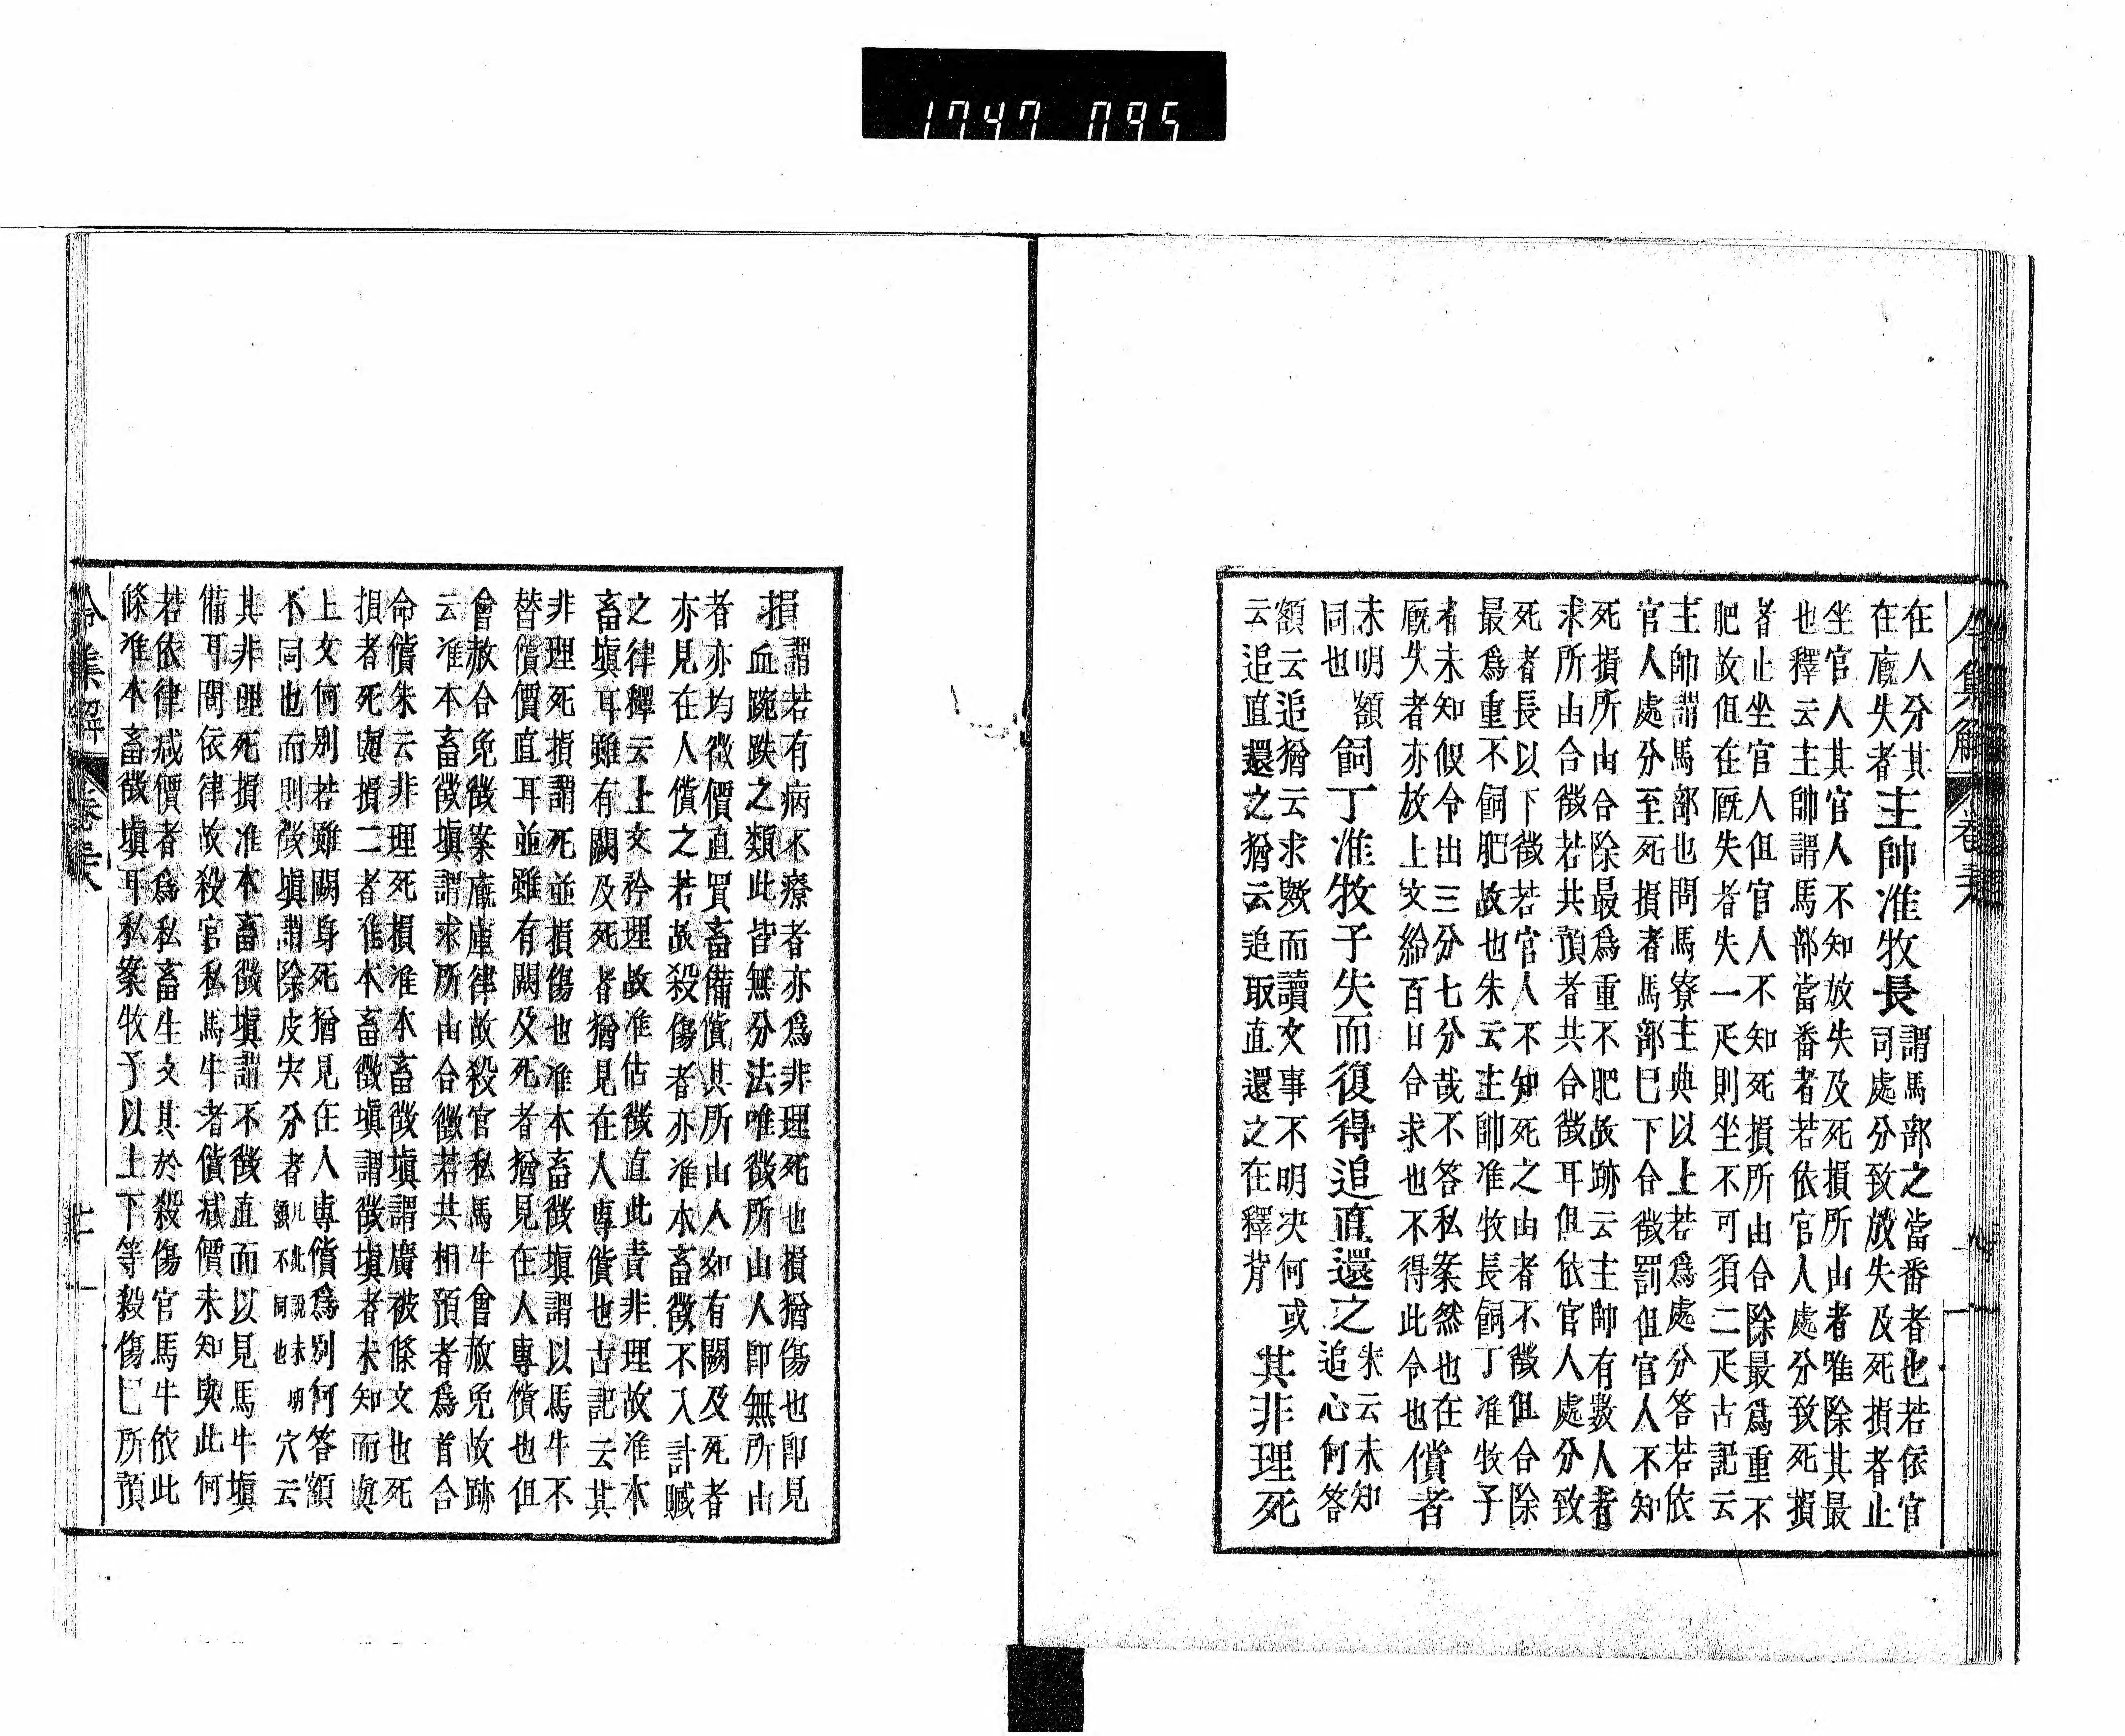 1747 095
在人分其
在廐失者
主帥准牧長
謂馬部之當番者也若依官
司處分致放失及死損者止
坐官人其官人不知放失及死損所由者唯除其最
也釋云主帥謂馬部當番者若依官人處分致死損
者止坐官人但官人不知死損所由合除最爲重不
肥故但在厩失者失一疋則坐不可須二疋古記云
主帥謂馬部也問馬寮主典以上若爲處分答若依
官人處分至死損者馬部巳下合徵罰但官人不知
死損所由合除最爲重不肥故跡云主帥有數人者
求所由合徵若共預者共合徵耳但依官人處分致
死者長以下徵若官人不知死之由者不徵但合除
最爲重不飼肥故也朱云主帥准牧長飼丁准牧子
者未知假令出三分七分哉不答私案然也在
厩失者亦放上文給百日合求也不得此令也
償者
未明額
同也
飼丁准牧子失而復得追直還之
朱云未知
追心何答
額云追猶云求歟而讀文事不明决何或
云追直還之猶云追取直還之在釋背
其非理死
損
謂若有病不療者亦爲非理死也損猶傷也即見
血踠跌之類此皆無分法唯徵所由人即無所由
者亦均徵價直買畜備償其所由人如有闕及死者
亦見在人償之若故殺傷者亦准本畜徵不入計贓
之律釋云上文矜理故准估徵直此責非理故准本
畜塡耳雖有闕及死者猶見在人專償也古記云其
非理死損謂死並損傷也准本畜徵塡謂以馬牛不
替償價直耳並雖有闕及死者猶見在人專償也但
會赦合免徵案廐庫律故殺官私馬牛會赦免故跡
云准本畜徵塡謂求所由合徵若共相預者爲首合
命償朱云非理死損准本畜徵塡謂廣被條文也死
損者死與損二者准本畜徵塡謂徵塡者未知而與
上文何別若雖闕身死猶見在人專償爲別何答額
不同也而則徵塡謂除皮宍分者
凡此說未明
額不同也
穴云
其非理死損准本畜徵塡謂不徵直而以見馬牛塡
備耳問依律故殺官私馬牛者償减價未知與此何
若依律减價者爲私畜生文其於殺傷官馬牛依此
條准本畜徵塡耳私案牧子以上下等殺傷巳所預